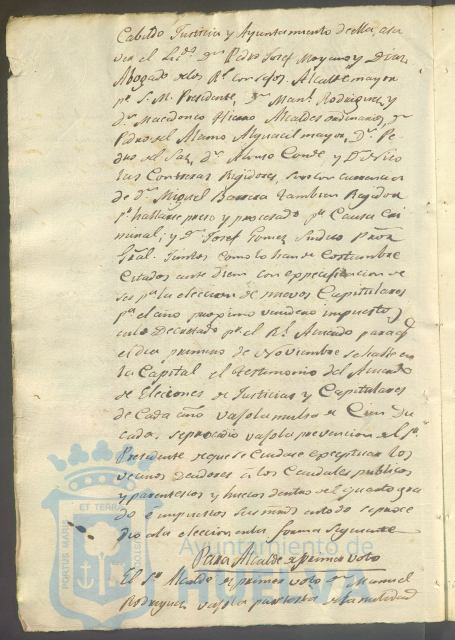 Cabildo Justicia y Ayuntamiento de ella, asa
ver el Licdo. Dn. Pedro Josef Moyano y Diaz
Abogado de los Rs. Consejos Alcalde mayor
pr. S. M. Presidente, Dn. Manl. Rodriguez, y
Dn. Macedonio Alcaldes ordinarios, Dn.
Pedro del Alamo Alguacil mayor, Dn. Pe
dro el Saz, Dn. Alonso Conde, y Dn. Nico
las Contreras Regidores, sin
de Dn. Miguel Barrera tambien Regidor
pr. hallarse preso y procesado pr. Causa Cri
minal; y Dn. Josef Gomez Sindico Pror.
Gral. Juntos como lo han de Costumbre
Citados ante diem con expecificacion de
ser pa. la eleccion de nuevos Capitulares
pa. el año proximo venidero impuestos
en lo Decretado pr. el Rl. Acuerdo para q
el dia primero de Noviembre se halle en
la Capital el testimonio del Acuerdo
de Elecciones de Justicias y Capitulares
de Cada año vajo la multa de Cien Du
cados, se procedio vajo la prevencion del Sr.
Presidente de que se Cuidase exceptuar los
vecinos deudores a los Caudales publicos
y parientes dentro del quarto gra
do e impuestos sus mrds. en todo se proce
dio a la eleccion en la forma siguiente
Para Alcalde de primer voto
El Sr. Alcalde de primer voto Dn. Manuel
Rodriguez vajo la protesta de la nulidad
PORTUS MARIS
ET TERRAE
Ayuntamiento de
HUELVA